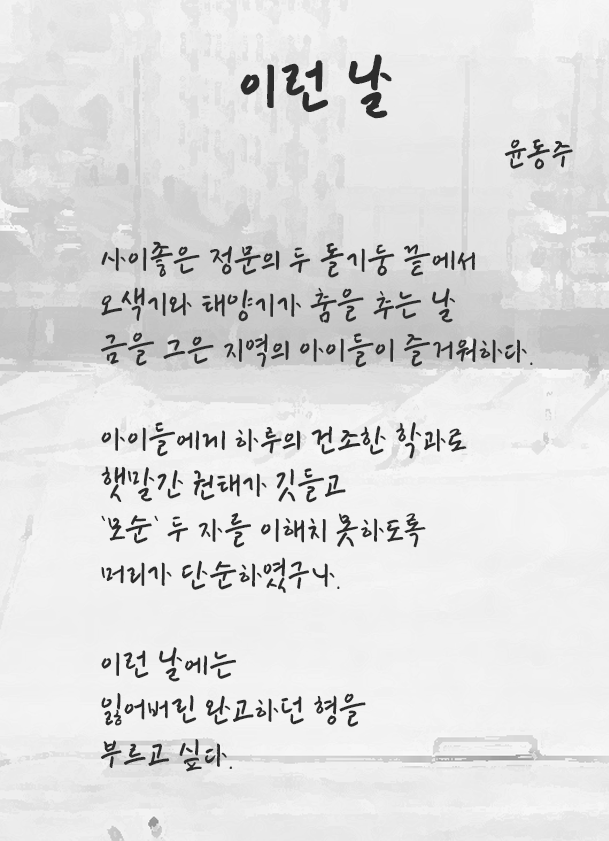 이런 날
윤동주
사이좋은 정문의 두 돌기둥 끝에서
오색기와 태양기가 춤을 추는 날
금을 그은 지역의 아이들이 즐거워하다.
아이들에게 하루의 건조한 학과로
햇말간 권태가 깃들고
'모순' 두 자를 이해치 못하도록
머리가 단순하였구나.
이런 날에는
잃어버린 완고하던 형을
부르고 싶다.